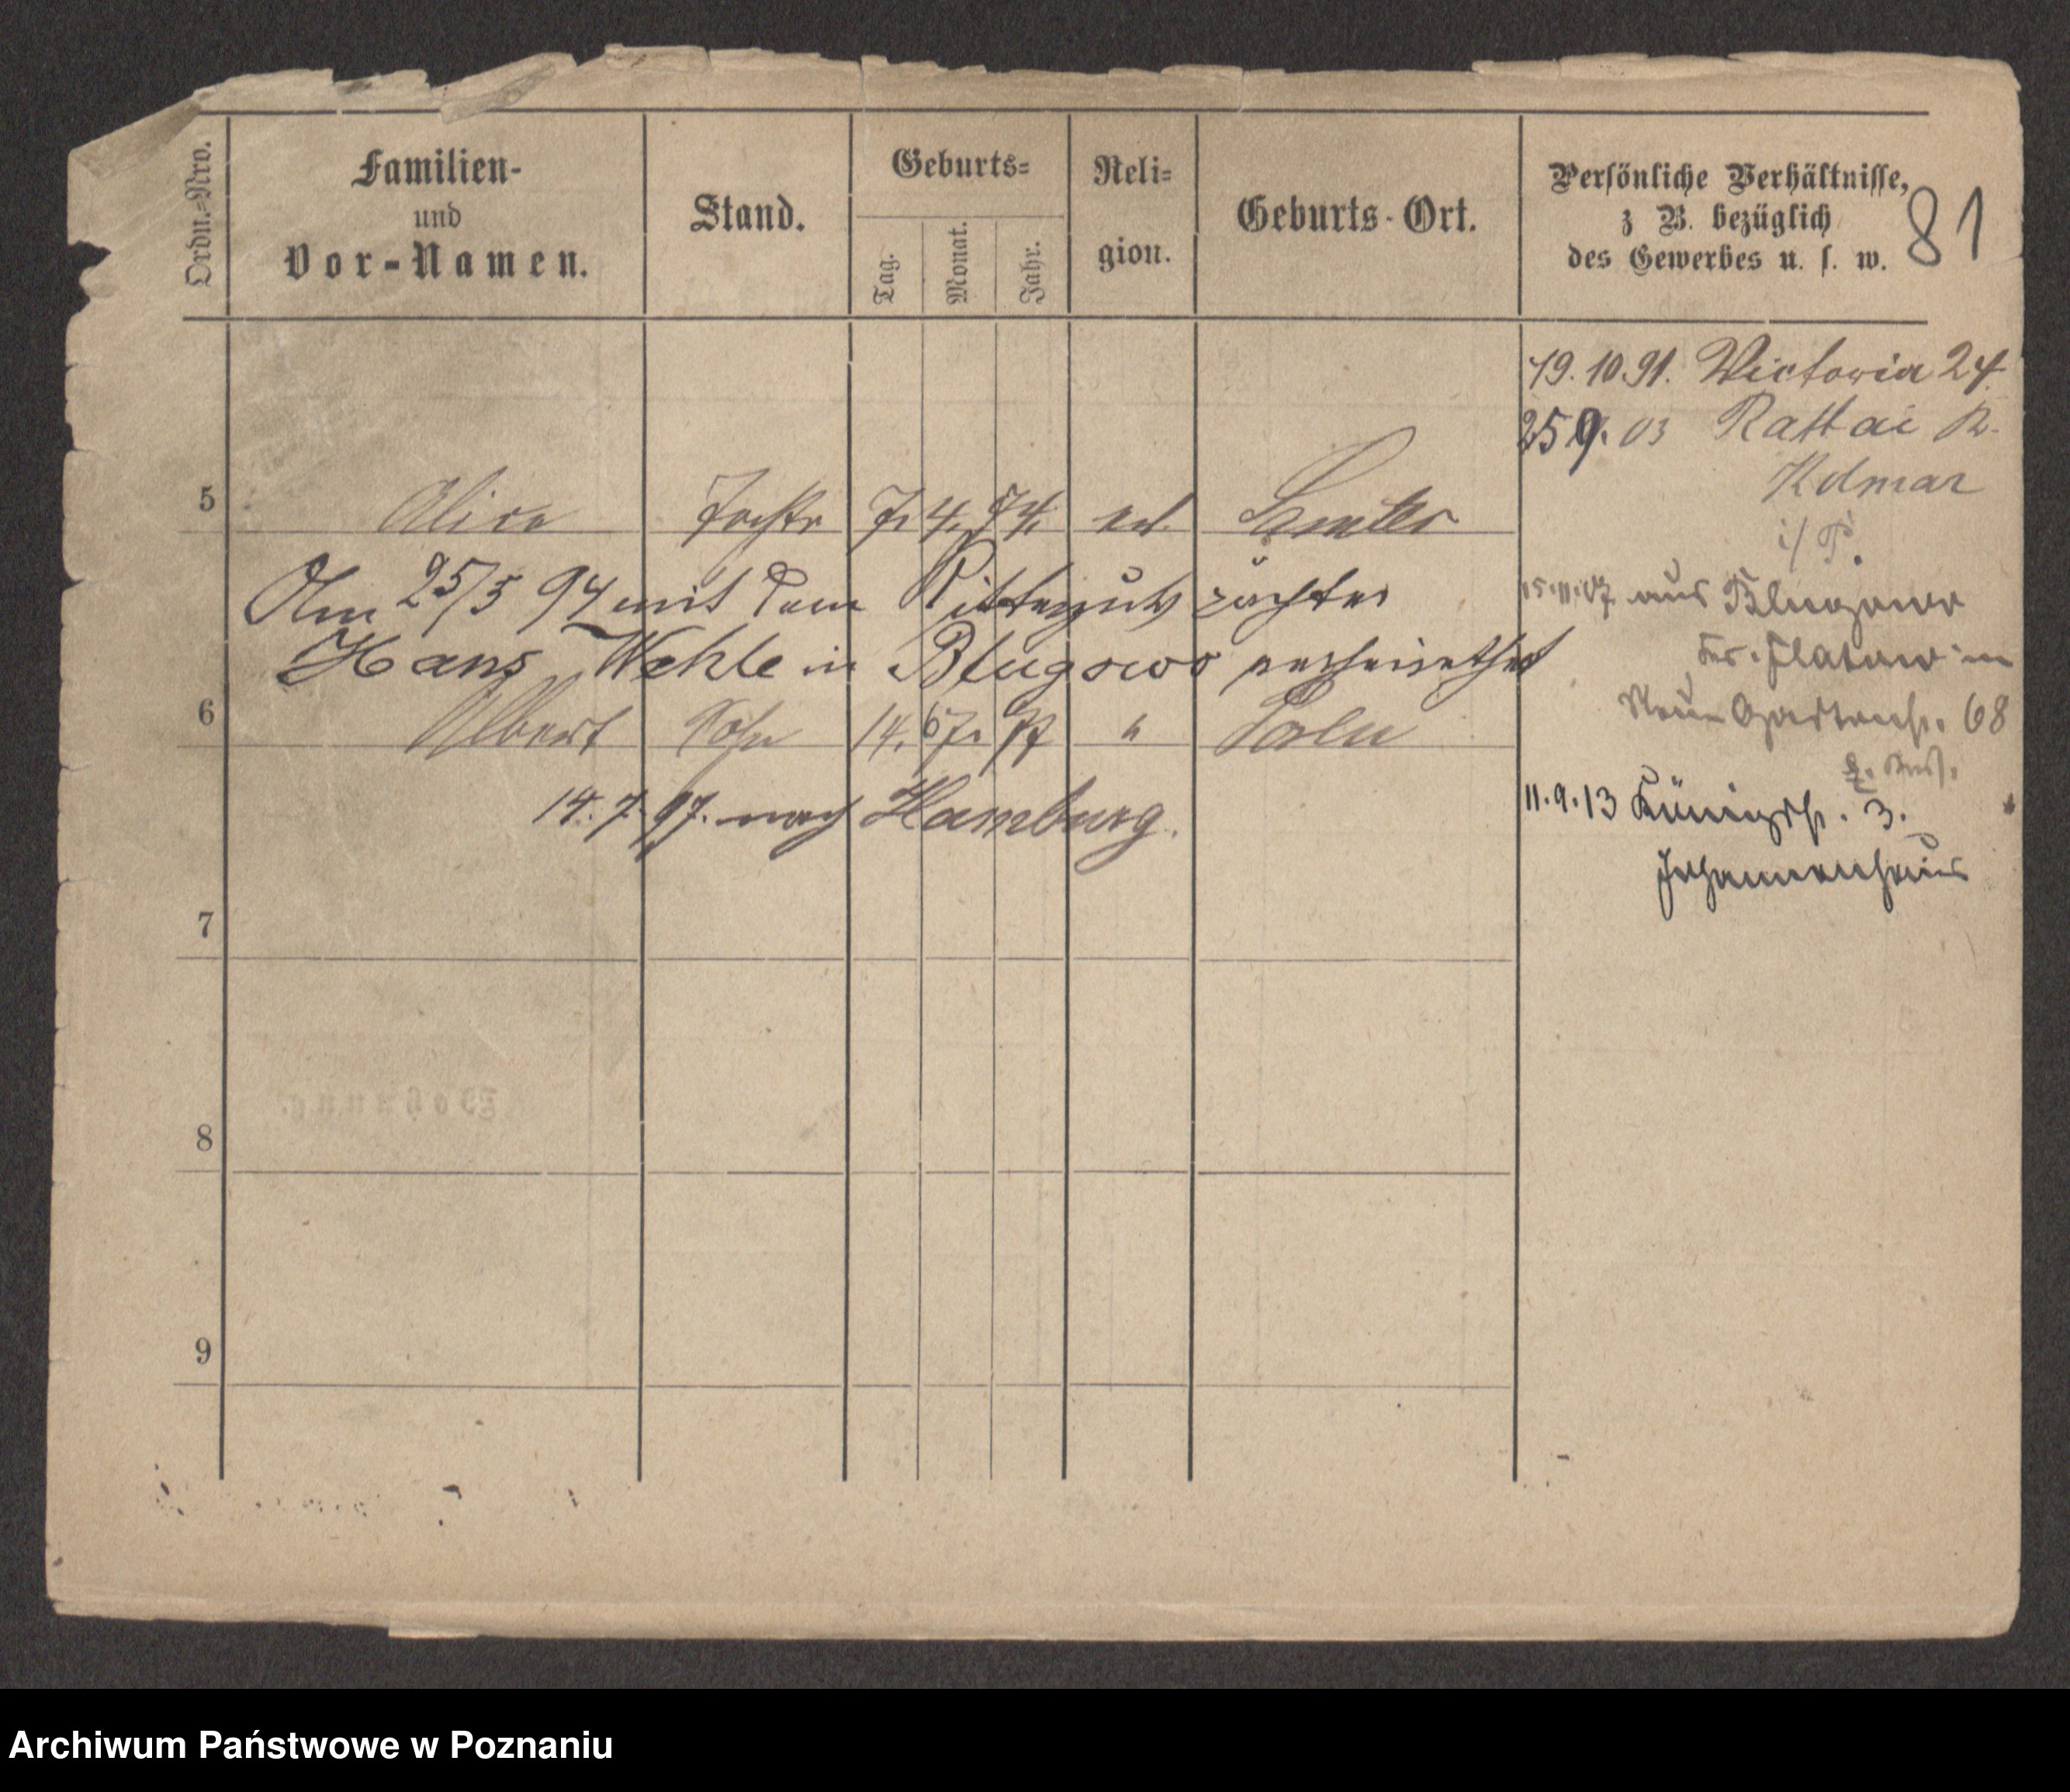 Ordn.-Nro.
Familien-
und
Vor-Namen.
Stand.
Geburts-
Tag.
Monat.
Jahr.
Reli-
gion.
Geburts-Ort.
Persönliche Verhältnisse,
z B. bezüglich
des Gewerbes u. s. w.
81
19. 10. 91. Victoria 24.
25 9. 03 Rattai K.
Kolmar
i/P.
5 Alice Tocht 7. 4. 74. Samter
Am 25/5 94 mit dem Rittergutspächter
Hans Wehle in Blugowo verheirathet
6 Albert Sohn 14. 77 "
14. 7. 97. nach Hamburg.
15.11.07 aus Blugowo
Kr. Flatow in
Neue Gartenstr. 68
11.9.13 Königstr. 3.
Johannenhaus
7
8
9
Archiwum Państwowe w Poznaniu